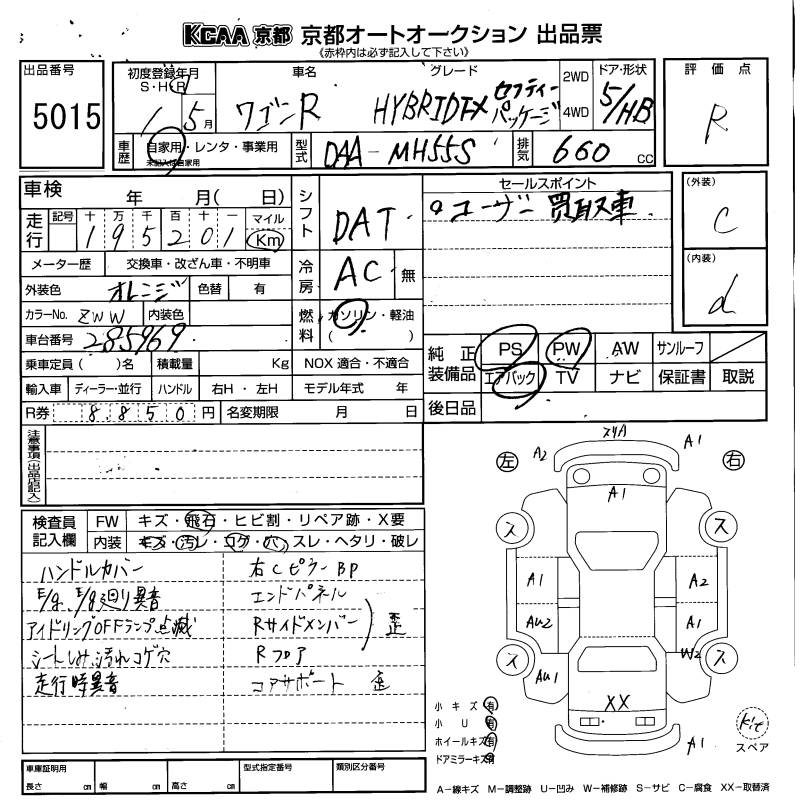 KCAA 京都 京都オートオークション 出品票
《赤枠内は必ず記入して下さい》
出品番号
5015
初度登録年月
S・H・R
1 5月
車名
ワゴンR
グレード
HYBRID FX セフティーパッケージ
2WD
4WD
ドア・形状
5/HB
車歴
自家用・レンタ・事業用
未記入は自家用
型式
DAA-MH55S
排気
660 cc
評価点
R
車検 年 月( 日)
走行
記号 十 万 千 百 十 一 マイル
1 9 5 2 0 1 Km
メーター歴 交換車・改ざん車・不明車
外装色 オレンジ 色替 有
カラーNo. ZWW 内装色
車台番号 285969
乗車定員 ( ) 積載量 Kg NOX 適合・不適合
輸入車 ディーラー・並行 ハンドル 右H・左H モデル年式 年
R券 8850円 名変期限 月 日
シフト DAT
冷房 AC 無
燃料 ガソリン・軽油
( )
セールスポイント
ユーザー買取車
(外装)
C
(内装)
d
純正装備品
PS PW AW サンルーフ
エアバック TV ナビ 保証書 取説
後日品
注意事項(出品店記入)
検査員記入欄
FW キズ・飛石・ヒビ割・リペア跡・X要
内装 キズ・汚レ・コゲ・穴・スレ・ヘタリ・破レ
ハンドルカバー
E/g、E/g廻り異音
アイドリングOFFランプ点滅
シートしみ汚れコゲ穴
走行時異音
右CピラーBP
エンドパネル
Rサイドメンバー
Rフロア
歪
コアサポート 歪
左
右
A2
スリA
A1
A1
ス
ス
A1
A2
AU2
A1
ス
W2
ス
AU1
XX
A1
小キズ 有
小U 有
ホイールキズ 有
ドアミラーキズ 有
Kit
スペア
車庫証明用
長さ cm 幅 cm 高さ cm
型式指定番号
類別区分番号
A-線キズ M-調整跡 U-凹み W-補修跡 S-サビ C-腐食 XX-取替済